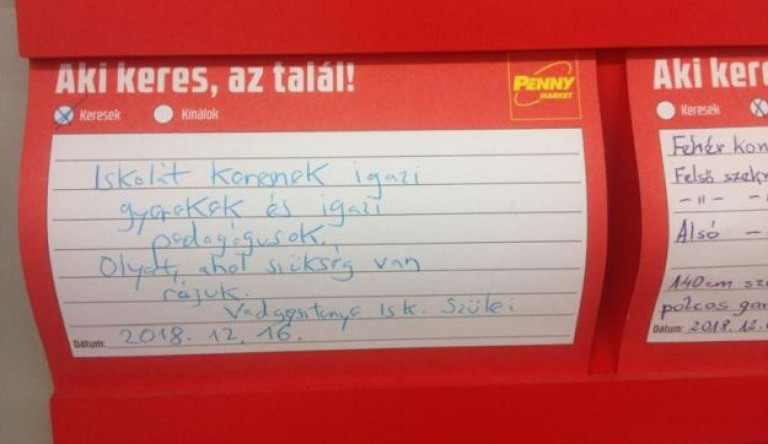 Aki keres, az talál!
PENNY
MARKET
Keresek
Kínálok
Iskolát keresnek igazi
gyerekek és igazi
pedagógusok.
Olyat, ahol szükség van
rájuk.
Vadgesztenye Isk. Szülei
Dátum: 2018. 12. 16.
Aki kere
Keresek
Fehér kon
Felső szekr
- 11 -
Alsó -
140cm szé
polcos gar
Dátum: 2018. 12.